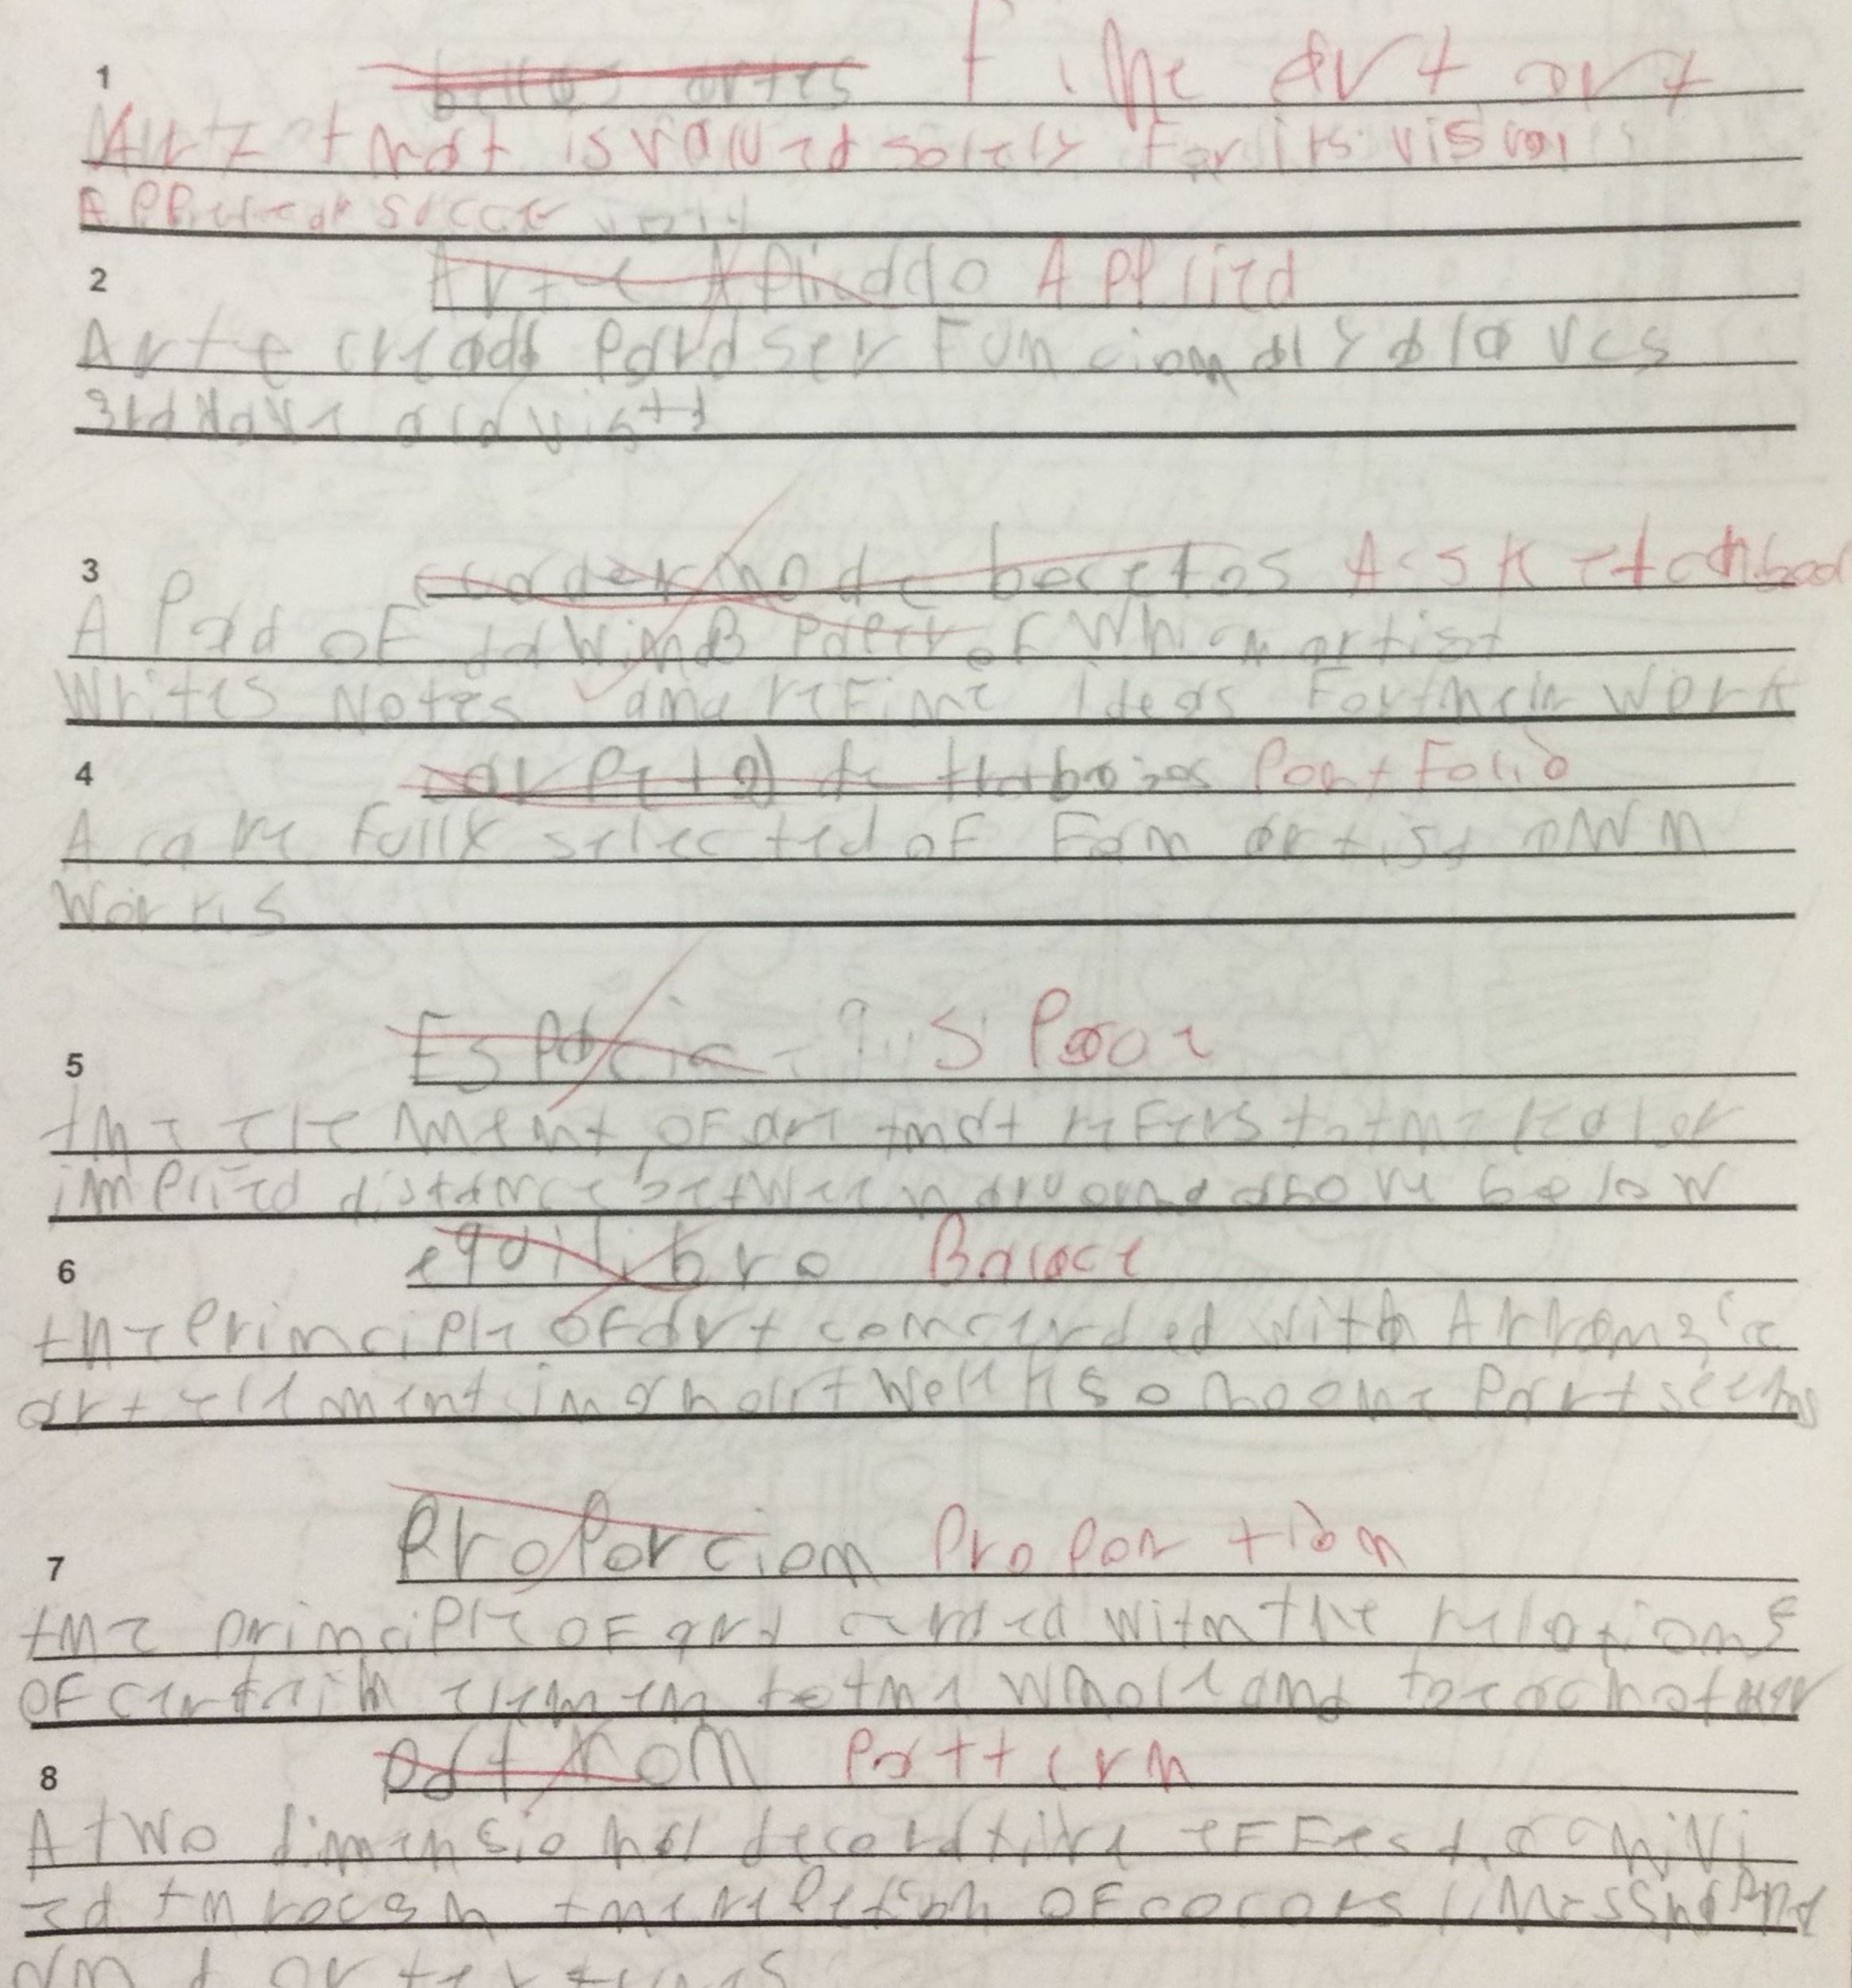 1 bellas artes Fine art art
Art that is valued solely For its visual
succe
2 Arte Apliddo Applied
Arte creada para ser Funcional y a la ves
a la vista
3 cuaderno de bocetos A sketchboo
A Pad oF Paper oF Wh an artist
Writes Notes and reFine Ideas For their Work
4 de Portfolio
A care Fully selected oF an artist oWn
Works
5 Espacio Space
the element oF art that reFers to the real or
implied distance between around above below
6 equilibro Balace
the Principle oF art concerded with Arrang
art element in a Work so no one Part seems
7 Proporcion Proportion
the principle oF art With the relations
oF certain elemen to the Whole and to each other
8 patron Pattern
A tWo dimensional decorative eFFect achivi
ed through the repetion oF colors lines
and or textures